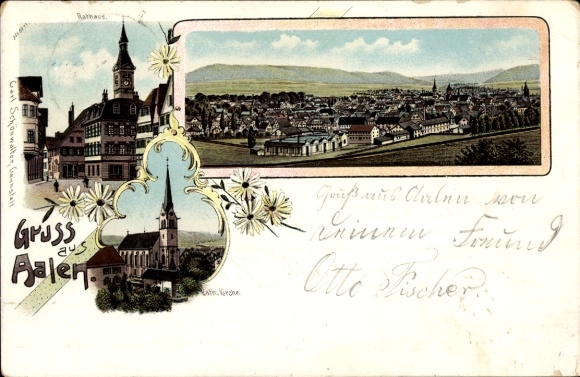 Rathaus.
Carl Schönwalter, Cannstatt
Gruss
aus
Aalen.
Kath. Kirche.
Gruß aus Aalen von
deinem Freund
Otto Fischer.